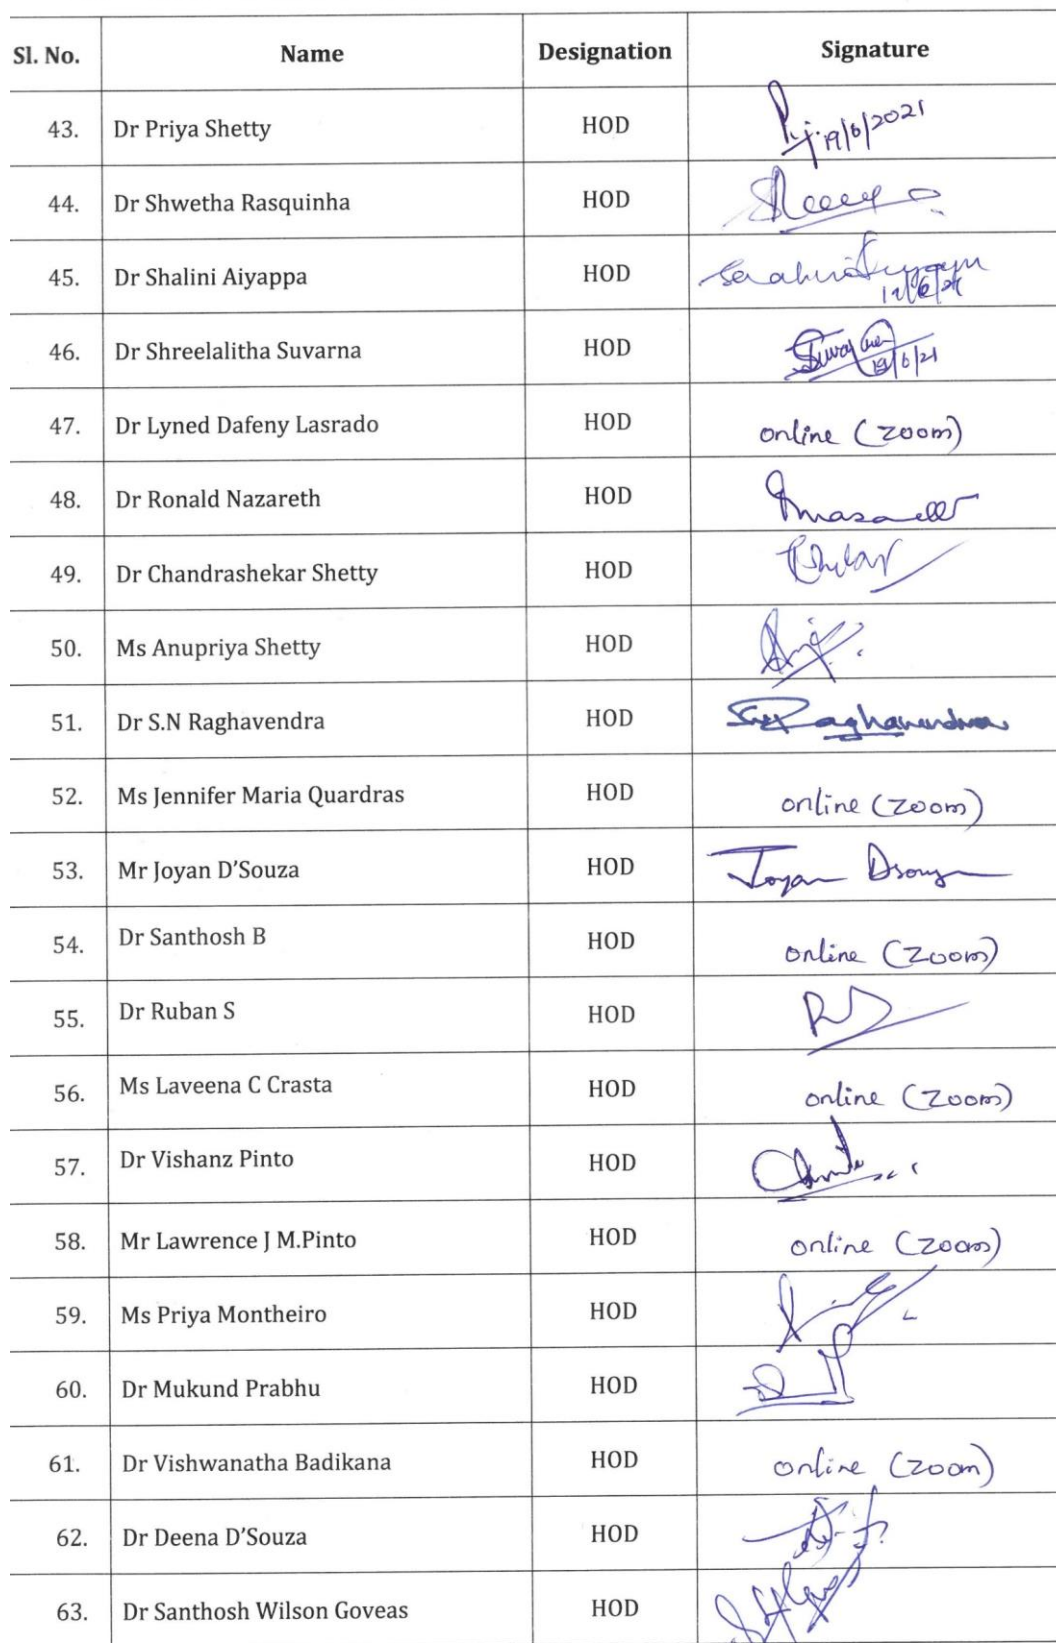 Sl. No. Name Designation Signature
43. Dr Priya Shetty HOD 19/6/2021
44. Dr Shwetha Rasquinha HOD
45. Dr Shalini Aiyappa HOD
46. Dr Shreelalitha Suvarna HOD 19/6/21
47. Dr Lyned Dafeny Lasrado HOD online (zoom)
48. Dr Ronald Nazareth HOD
49. Dr Chandrashekar Shetty HOD
50. Ms Anupriya Shetty HOD
51. Dr S.N Raghavendra HOD Raghavendra
52. Ms Jennifer Maria Quardras HOD online (zoom)
53. Mr Joyan D'Souza HOD Joyan Dsouza
54. Dr Santhosh B HOD online (zoom)
55. Dr Ruban S HOD
56. Ms Laveena C Crasta HOD online (zoom)
57. Dr Vishanz Pinto HOD
58. Mr Lawrence J M.Pinto HOD online (zoom)
59. Ms Priya Montheiro HOD
60. Dr Mukund Prabhu HOD
61. Dr Vishwanatha Badikana HOD online (zoom)
62. Dr Deena D'Souza HOD
63. Dr Santhosh Wilson Goveas HOD